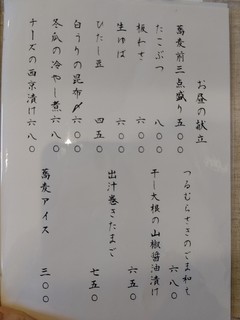 お昼の献立
蕎麦前三点盛り 五〇〇
たこぶつ 八〇〇
板わさ 六〇〇
生ゆば 六〇〇
ひたし豆 四五〇
白うりの昆布〆 六〇〇
冬瓜の冷やし煮 六八〇
チーズの西京漬け 六八〇
つるむらさきのごま和え 六八〇
干し大根の山椒醤油漬け 六五〇
出汁巻きたまご 七五〇
蕎麦アイス 三〇〇